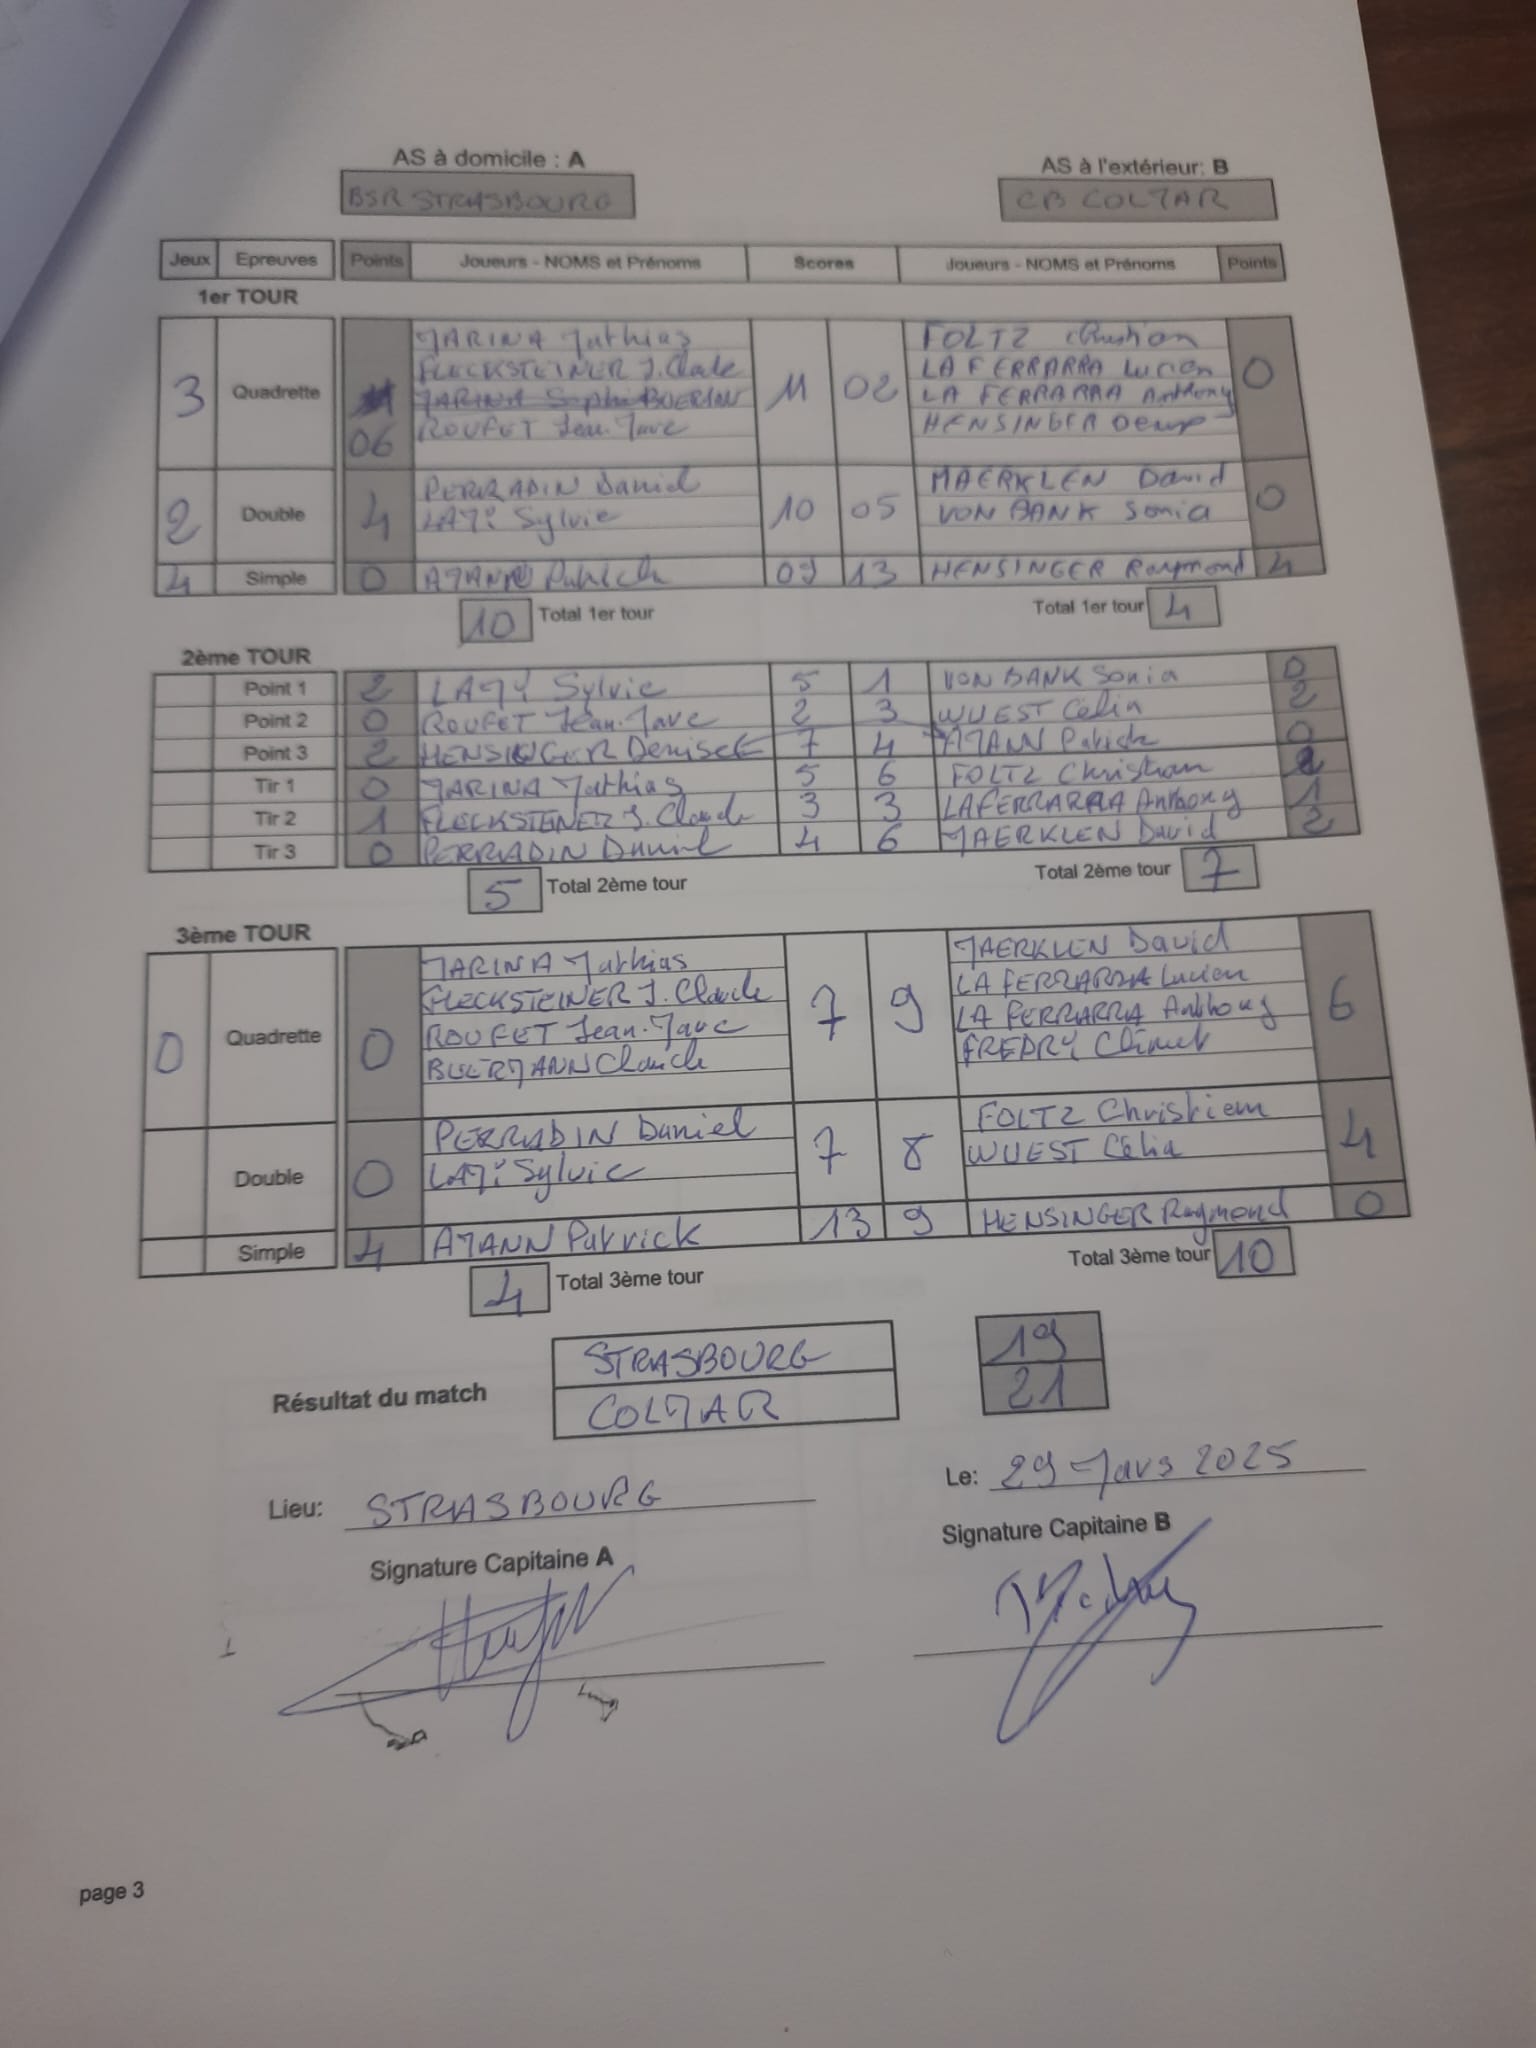 AS à domicile : A
AS à l'extérieur: B
BSR STRASBOURG
CB COLMAR
Jeux Epreuves Points Joueurs - NOMS et Prénoms Scores Joueurs - NOMS et Prénoms Points
1er TOUR
MARINA Mathias FOLTZ Christian
FLECKSTEINER J. Claude LA FERRARRA Lucien
3 Quadrette 11 02 LA FERRARRA Anthony 0
06 ROUFET Jean-Marc HENSINGER
PERRADIN Daniel MAERKLEN David
2 Double 4 LAMY Sylvie 10 05 VON BANK Sonia 0
4 Simple 0 AMANN Patrick 09 13 HENSINGER Raymond 4
10 Total 1er tour Total 1er tour 4
2ème TOUR
Point 1 2 LAMY Sylvie 5 1 VON BANK Sonia 0
Point 2 0 ROUFET Jean-Marc 2 3 WUEST Célia 2
Point 3 2 HENSINGER Denise 7 4 AMANN Patrick 0
Tir 1 0 MARINA Mathias 5 6 FOLTZ Christian 2
Tir 2 1 FLECKSTEINER J. Claude 3 3 LAFERRARRA Anthony 1
Tir 3 0 PERRADIN Daniel 4 6 MAERKLEN David 2
5 Total 2ème tour Total 2ème tour 7
3ème TOUR
MARINA Mathias MAERKLEN David
FLECKSTEINER J. Claude LA FERRARRA Lucien
0 Quadrette 0 ROUFET Jean-Marc 7 9 LA FERRARRA Anthony 6
BUERMANN Claude FREDRY
PERRADIN Daniel FOLTZ Christian
Double 0 LAMY Sylvie 7 8 WUEST Célia 4
Simple 4 AMANN Patrick 13 9 HENSINGER Raymond 0
4 Total 3ème tour Total 3ème tour 10
STRASBOURG 19
Résultat du match
COLMAR 21
Lieu: STRASBOURG Le: 29 Mars 2025
Signature Capitaine A Signature Capitaine B
page 3